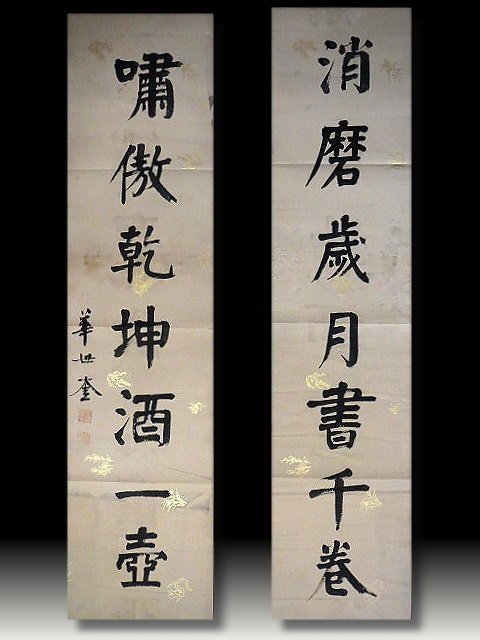 消磨歲月書千卷
嘯傲乾坤酒一壺
華世奎